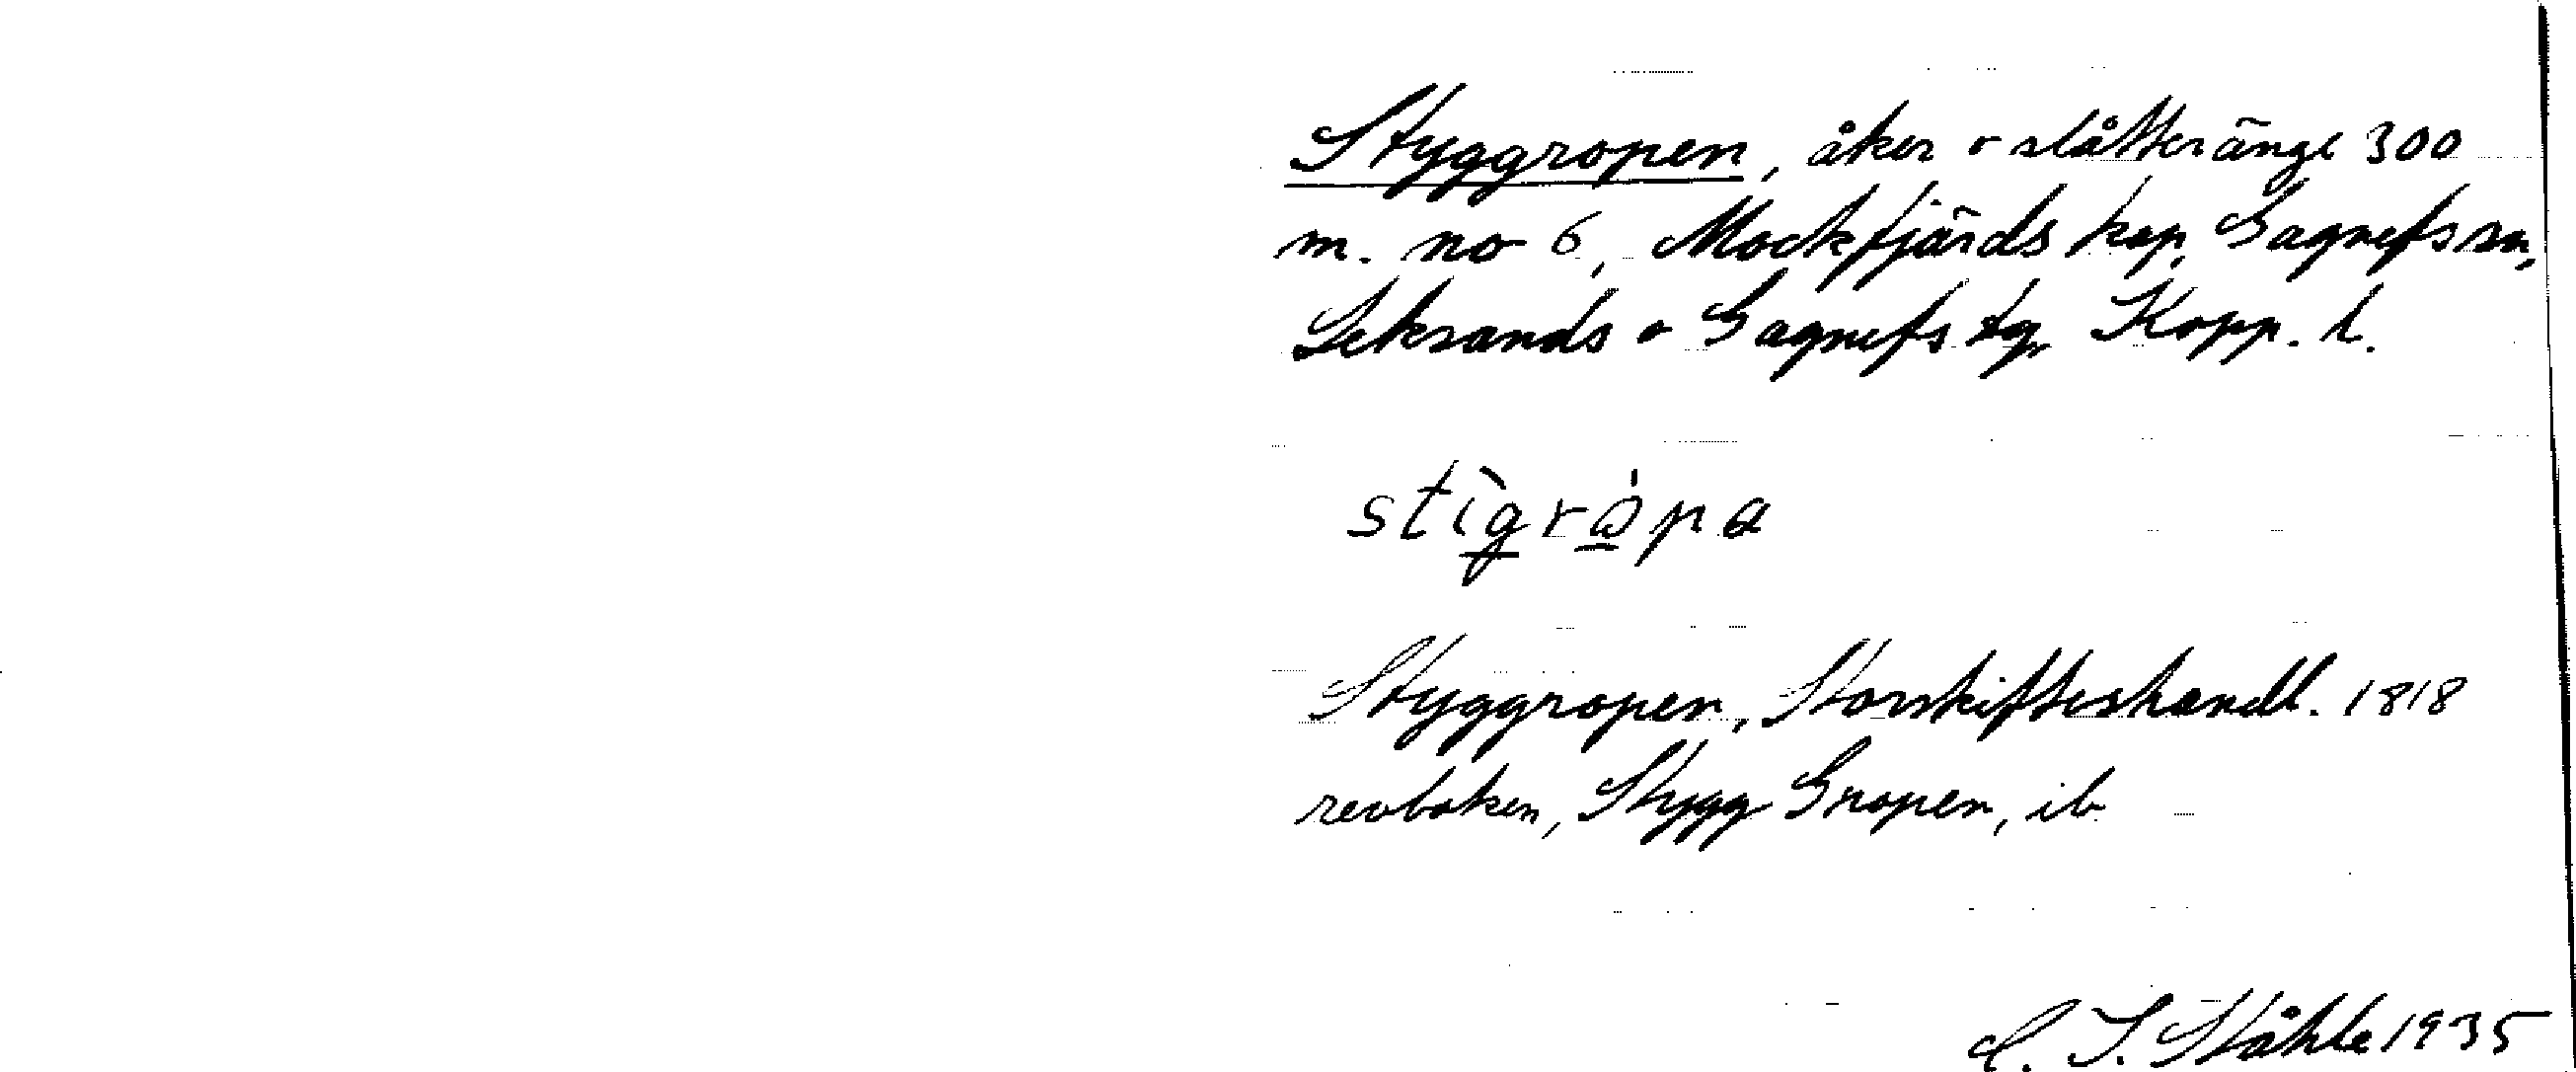 Styggropen, åker o slåtteränge 300
m. no 6, Mockfjärds kap, Gagnefs sn,
Leksands o Gagnefs tg, Kopp. l.
stìgròpa
Styggropen, Storskifteshandl. 1818
revboken, Stygg Gropen, ib
C. I. Ståhle 1935